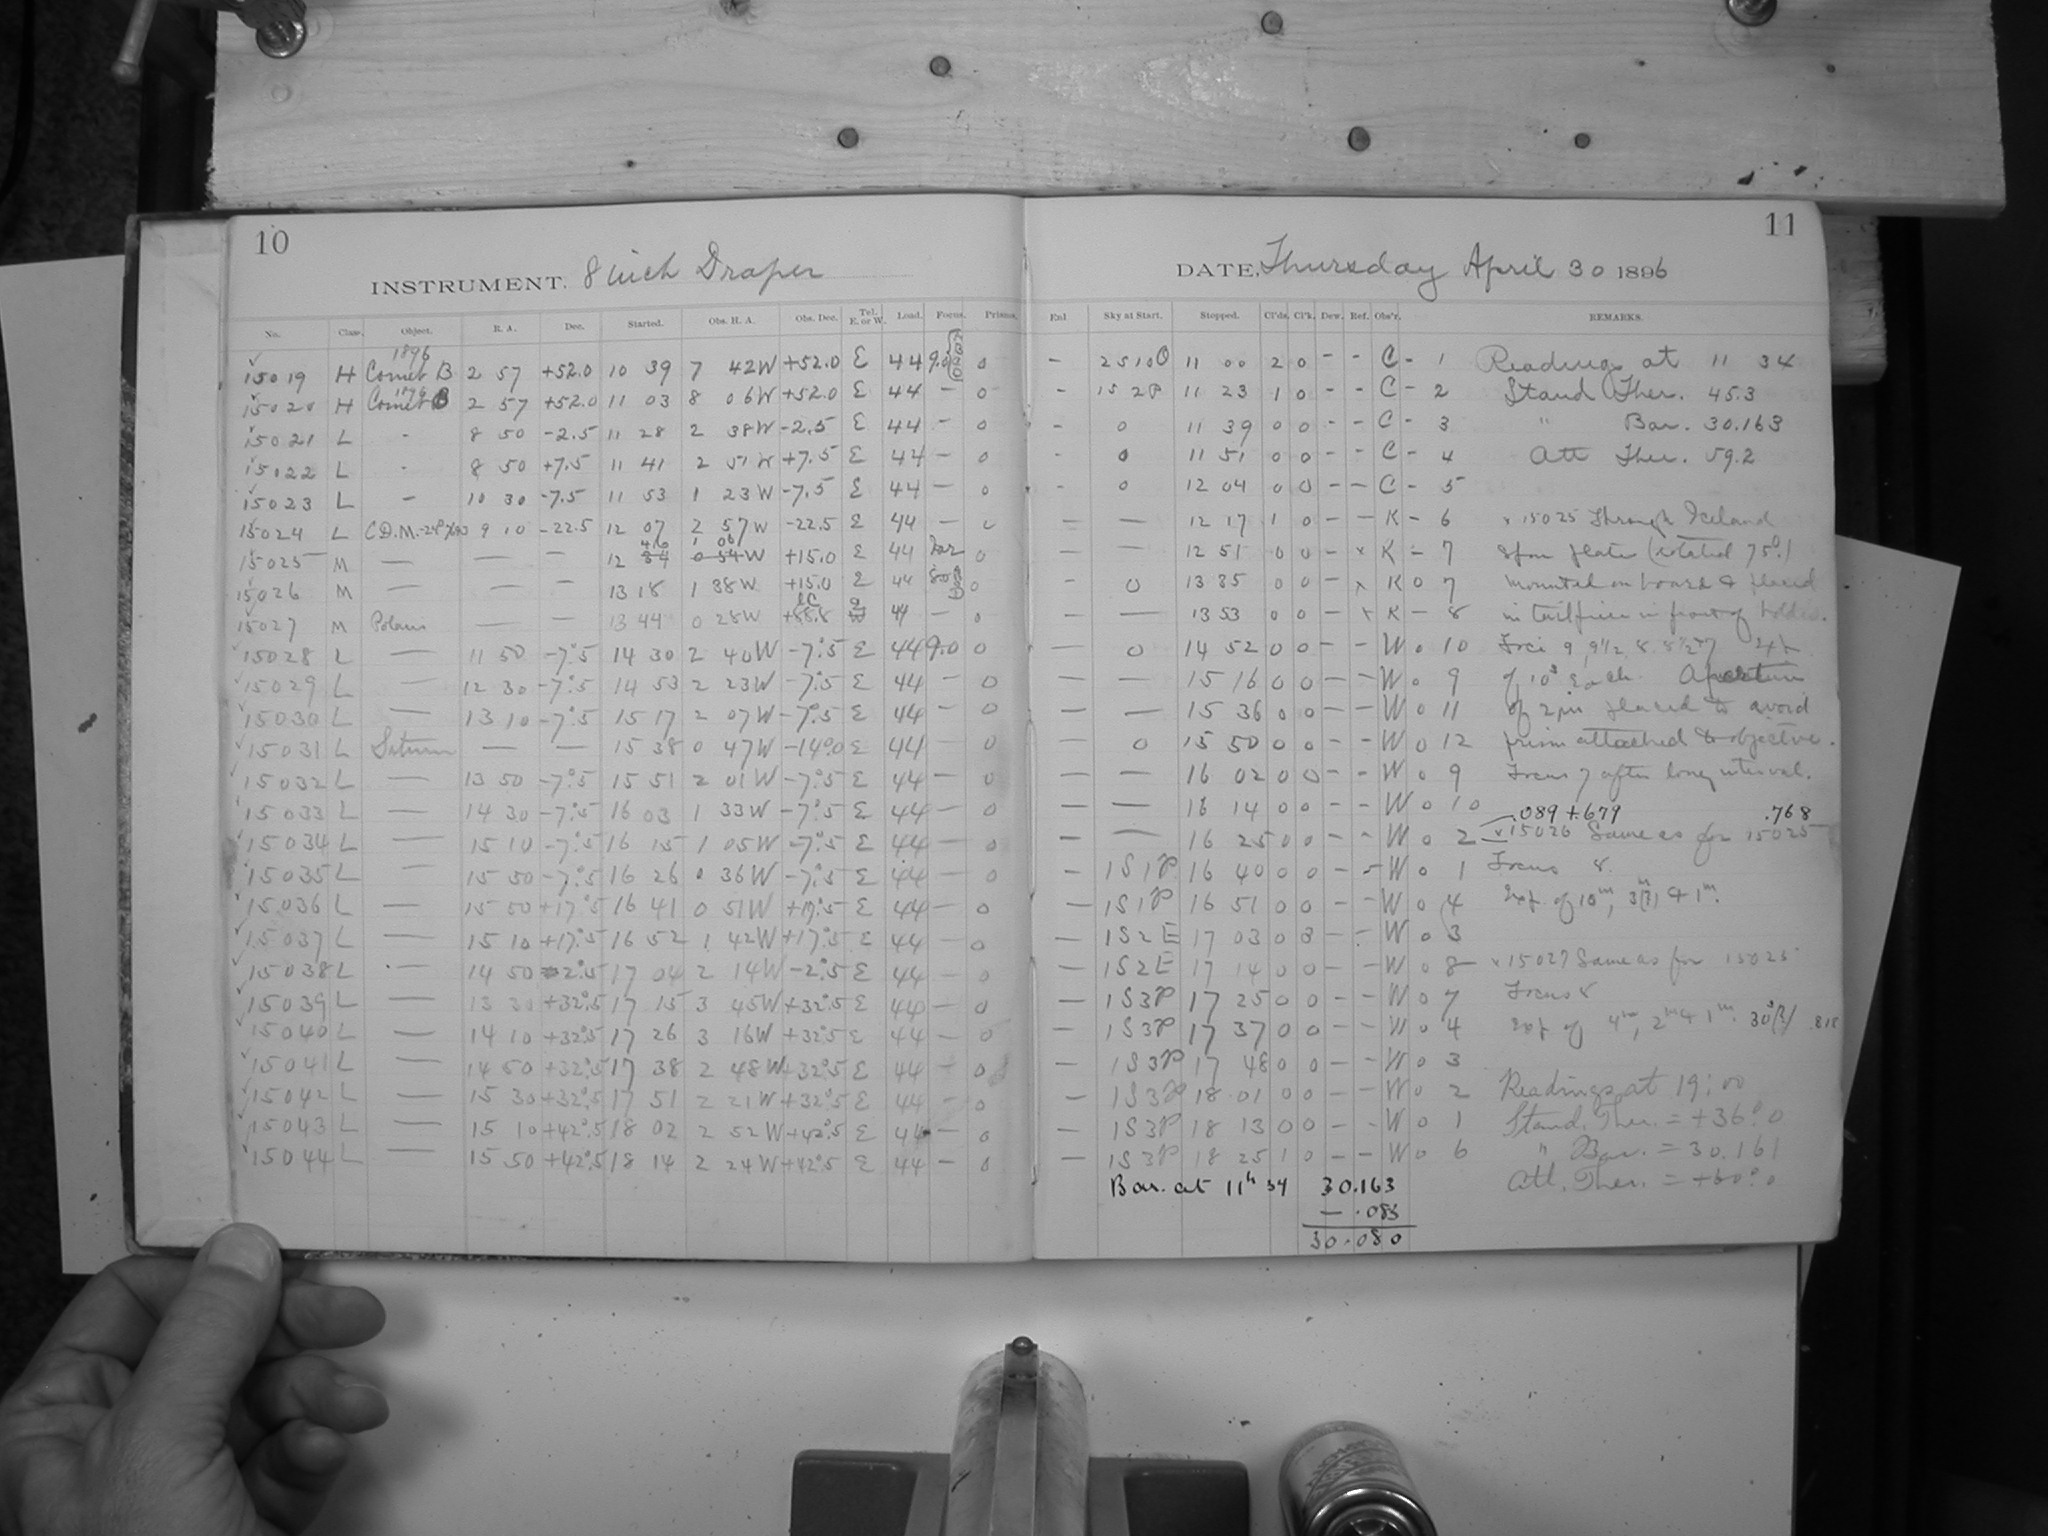 10
INSTRUMENT. 8 inch Draper
No. Class. Object. R. A. Dec. Started. Obs. H. A. Obs. Dec. Tel. E. or W. Load. Focus. Prisms.
15019 H 1896 Comet B 2 57 +52.0 10 39 7 42W +52.0 E 44 9.0 0
15020 H 1896 Comet B 2 57 +52.0 11 03 8 06W +52.0 E 44 — 0
15021 L - 8 50 -2.5 11 28 2 38W -2.5 E 44 — 0
15022 L - 8 50 +7.5 11 41 2 51W +7.5 E 44 — 0
15023 L - 10 30 -7.5 11 53 1 23W -7.5 E 44 — 0
15024 L C.D.M. 9 10 -22.5 12 07 2 57W -22.5 E 44 — 0
15025 M — — — 12 46 1 06 W +15.0 E 44 0
15026 M — — — 13 18 1 38W +15.0 E 44 0
15027 M Polaris — — 13 44 0 28W +88.8 44 — 0
15028 L — 11 50 -7°.5 14 30 2 40W -7°.5 E 44 9.0
15029 L — 12 30 -7°.5 14 53 2 23W -7°.5 E 44 — 0
15030 L — 13 10 -7°.5 15 17 2 07W -7°.5 E 44 — 0
15031 L Saturn — — 15 38 0 47W -14°.0 E 44 — 0
15032 L — 13 50 -7°.5 15 51 2 01W -7°.5 E 44 — 0
15033 L — 14 30 -7°.5 16 03 1 33W -7°.5 E 44 — 0
15034 L — 15 10 -7°.5 16 15 1 05W -7°.5 E 44 — 0
15035 L — 15 50 -7°.5 16 26 0 36W -7°.5 E 44 — 0
15036 L — 15 50 +17°.5 16 41 0 51W +17°.5 E 44 — 0
15037 L — 15 10 +17°.5 16 52 1 42W +17°.5 E 44 — 0
15038 L — 14 50 -2°.5 17 04 2 14W -2°.5 E 44 — 0
15039 L — 13 30 +32°.5 17 15 3 45W +32°.5 E 44 — 0
15040 L — 14 10 +32°.5 17 26 3 16W +32°.5 E 44 — 0
15041 L — 14 50 +32°.5 17 38 2 48W +32°.5 E 44 — 0
15042 L — 15 30 +32°.5 17 51 2 21W +32°.5 E 44 — 0
15043 L — 15 10 +42°.5 18 02 2 52W +42°.5 E 44 — 0
15044 L — 15 50 +42°.5 18 14 2 24W +42°.5 E 44 — 0
11
DATE, Thursday April 30 1896
Enl Sky at Start. Stopped. Cl'ds. Cl'k. Dew. Ref. Obs'r. REMARKS.
- 2S100 11 00 2 0 - - C - 1 Readings at 11 34
- 1S2P 11 23 1 0 - - C - 2 Stand Ther. 45.3
- 0 11 39 0 0 - - C - 3 " Bar. 30.163
- 0 11 51 0 0 - - C - 4 Att Ther. 59.2
- 0 12 04 0 0 - - C - 5
— — 12 17 1 0 - - K - 6 x 15025 Through Iceland
— — 12 51 0 0 - x K - 7 spar plate (rotated 75°.)
— 0 13 35 0 0 - x K 0 7 mounted on board & placed
— — 13 53 0 0 - x K - 8 in tailpiece in front of holder.
— 0 14 52 0 0 - - W 0 10 Foci 9, 9½, 8, 8½
— — 15 16 0 0 - - W 0 9 of 10s each. Aperture
— — 15 36 0 0 - - W 0 11 of 2 in placed to avoid
— 0 15 50 0 0 - - W 0 12 prism attached to objective.
— — 16 02 0 0 - - W 0 9 Focus 7 after long interval.
— — 16 14 0 0 - - W 0 10 .089 +.679 .768
— — 16 25 0 0 - - W 0 2 x 15026 Same as for 15025
— 1S1P 16 40 0 0 - - W 0 1 Focus 8.
— 1S1P 16 51 0 0 - - W 0 4 Exp. of 10m, 3m & 1m.
— 1S2E 17 03 0 3 - - W 0 3
— 1S2E 17 14 0 0 - - W 0 8 x 15027 Same as for 15025
— 1S3P 17 25 0 0 - - W 0 7 Focus 8
— 1S3P 17 37 0 0 - - W 0 4 Exp of 4m, 2m & 1m. 30s .818
— 1S3P 17 48 0 0 - - W 0 3
— 1S3P 18 01 0 0 - - W 0 2 Readings at 19:00
— 1S3P 18 13 0 0 - - W 0 1 Stand. Ther. = +36°.0
— 1S3P 18 25 1 0 - - W 0 6 " Bar. = 30.161
Att. Ther. = +60°.0
Bar. at 11h 34 30.163
— .083
30.080